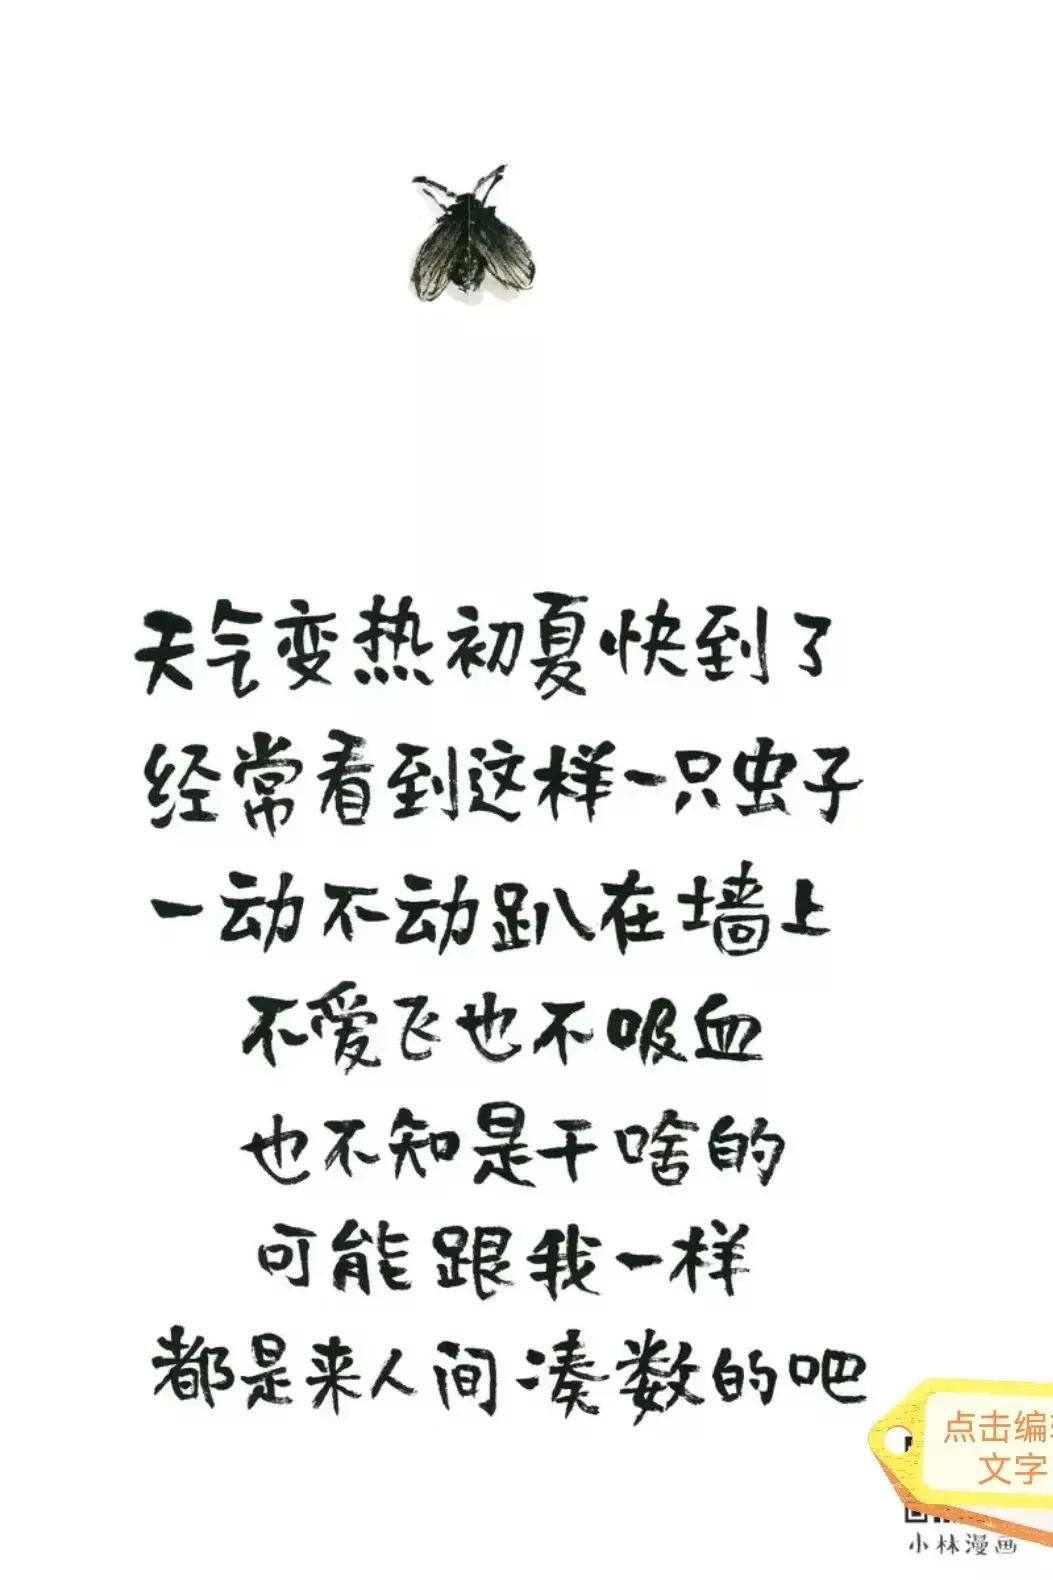 天气变热初夏快到了
经常看到这样一只虫子
一动不动趴在墙上
不爱飞也不吸血
也不知是干啥的
可能跟我一样
都是来人间凑数的吧
点击编辑
文字
小林漫画